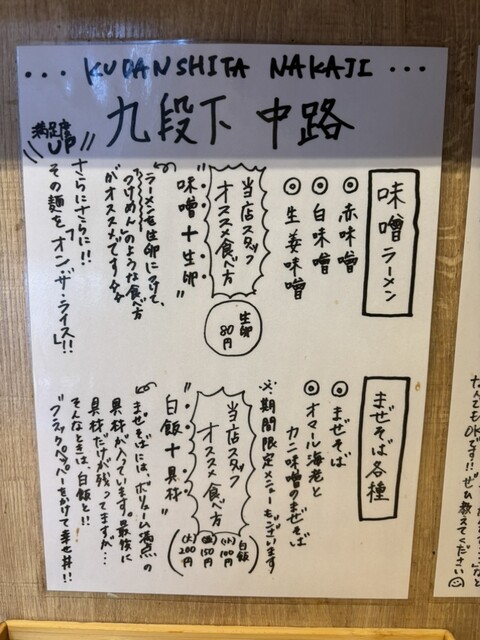 ... KUDANSHITA NAKAJI ...
九段下 中路
味噌ラーメン
◎赤味噌
◎白味噌
◎生姜味噌
当店スタッフ
オススメ食べ方
生卵
80円
"味噌+生卵"
ラーメンを生卵につけて、
つけめんのような食べ方
がオススメです☆☆
さらにさらに!!
その麺を「オン・ザ・ライス」!!
満足度
UP
まぜそば各種
◎まぜそば
◎オマール海老と
カニ味噌のまぜそば
※期間限定メニューもございます
当店スタッフ
オススメ食べ方
白飯
(小)100円
(中)150円
(大)200円
"白飯+具材"
まぜそばには、ボリューム満点の
具材が入っています。最後に
具材だけが残ってますが…
そんなときは、白飯と!!
ブラックペッパーをかけて幸せ丼!!
なんでもOKです!!
ぜひ教えてください